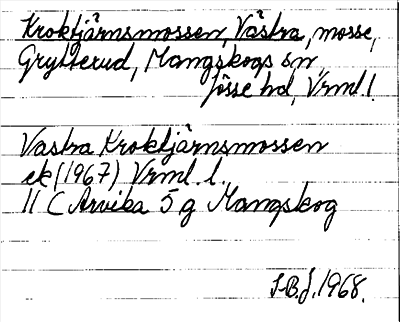 Kroktjärnsmossen, Västra, mosse,
Grytterud, Mangskogs sn,
Jösse hd, Vrml.l.
Västra Kroktjärnsmossen
ek (1967) Vrml. l.
11 C Arvika 5 g Mangskog
S-B.J. 1968.